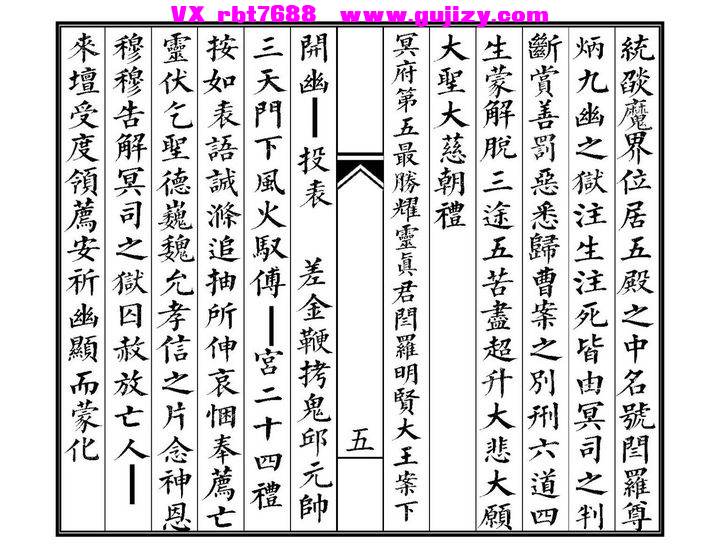 VX rbt7688   www.gujizy.com
統燄魔界位居五殿之中名號閻羅尊
炳九幽之獄注生注死皆由冥司之判
斷賞善罰惡悉歸曹案之別刑六道四
生蒙解脫三途五苦盡超升大悲大願
大聖大慈朝禮
冥府第五最勝耀靈眞君閻羅明賢大王案下
五
開幽━投表　差金鞭拷鬼邱元帥
三天門下風火馭傅━宮二十四禮
按如表語誠滌追抽所伸哀悃奉薦亡
靈伏乞聖德巍巍允孝信之片念神恩
穆穆告解冥司之獄囚赦放亡人━
來壇受度領薦安祈幽顯而蒙化